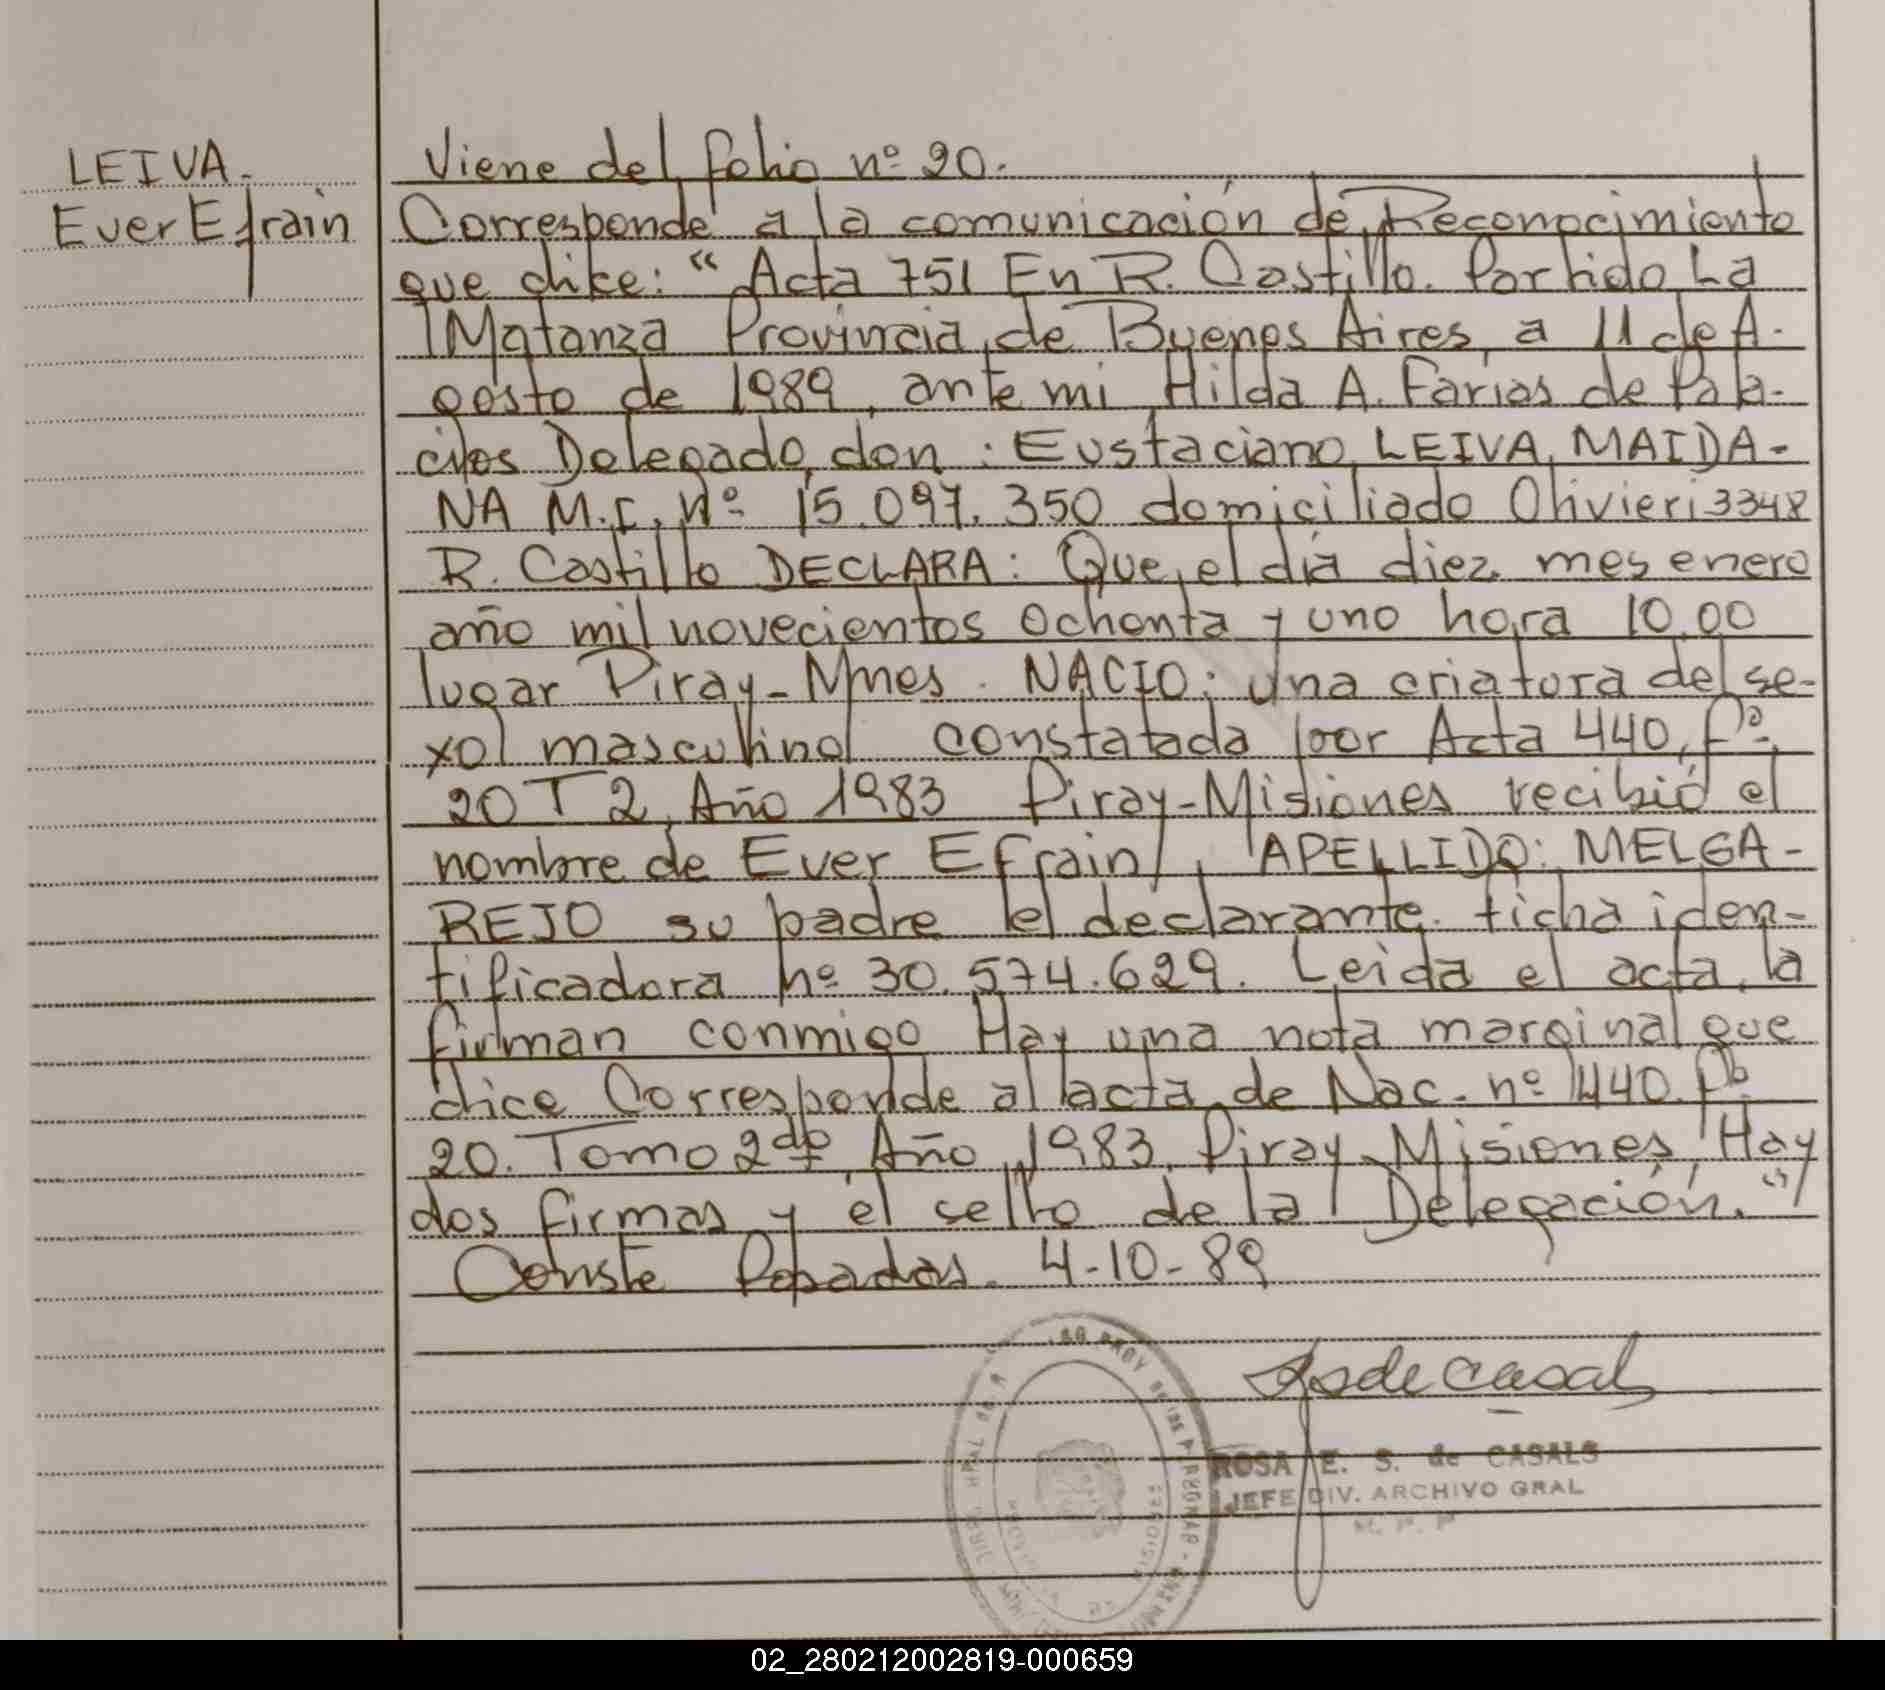 LEIVA.
Ever Efrain
Viene del folio nº 20.
Corresponde a la comunicación de Reconocimiento
que dice: " Acta 751 En R. Castillo. Partido La
Matanza Provincia de Buenos Aires, a 11 de A-
gosto de 1989, ante mi Hilda A. Farias de Pala-
cios Delegado, don : Eustaciano LEIVA MAIDA-
NA M.I. Nº 15.097.350 domiciliado Olivieri 3348
R. Castillo DECLARA: Que, el día diez mes enero
año mil novecientos ochenta y uno hora 10,00
lugar Piray-Mnes. NACIO: una criatura del se-
xo masculino constatada por Acta 440, fº
20 T 2, Año 1983 Piray-Misiones recibió el
nombre de Ever Efrain, APELLIDO: MELGA-
REJO su padre el declarante. ficha iden-
tificadora nº 30.574.629. Leida el acta, la
firman conmigo Hay una nota marginal que
dice Corresponde al acta de Nac. nº 440. fº
20. Tomo 2do, Año 1983. Piray Misiones, Hay
dos firmas y el sello de la Delegación."
Conste Posadas. 4-10-89
RSdeCasals
ROSA E. S. de CASALS
JEFE DIV. ARCHIVO GRAL
MISIONES
02_280212002819-000659